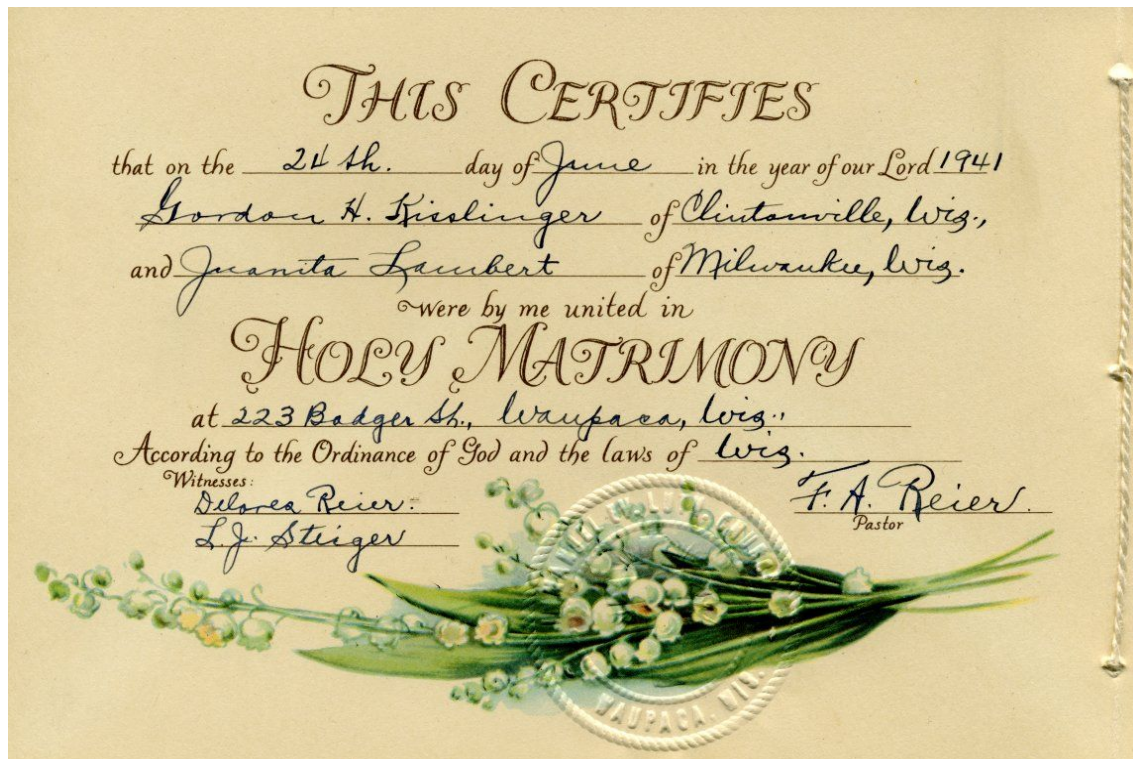 THIS CERTIFIES
that on the 24th. day of June in the year of our Lord 1941
Gordon H. Kisslinger of Clintonville, Wis.,
and Juanita Lambert of Milwaukee, Wis.
were by me united in
HOLY MATRIMONY
at 223 Badger St., Waupaca, Wis.,
According to the Ordinance of God and the laws of Wis.
Witnesses:
Delores Reier.
L.J. Steiger
F. A. Reier.
Pastor
WAUPACA, WIS.